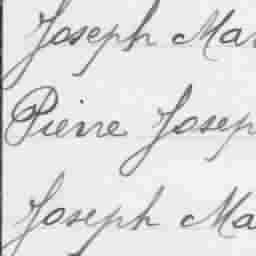 Joseph Mar
Pierre Josep
Joseph Ma